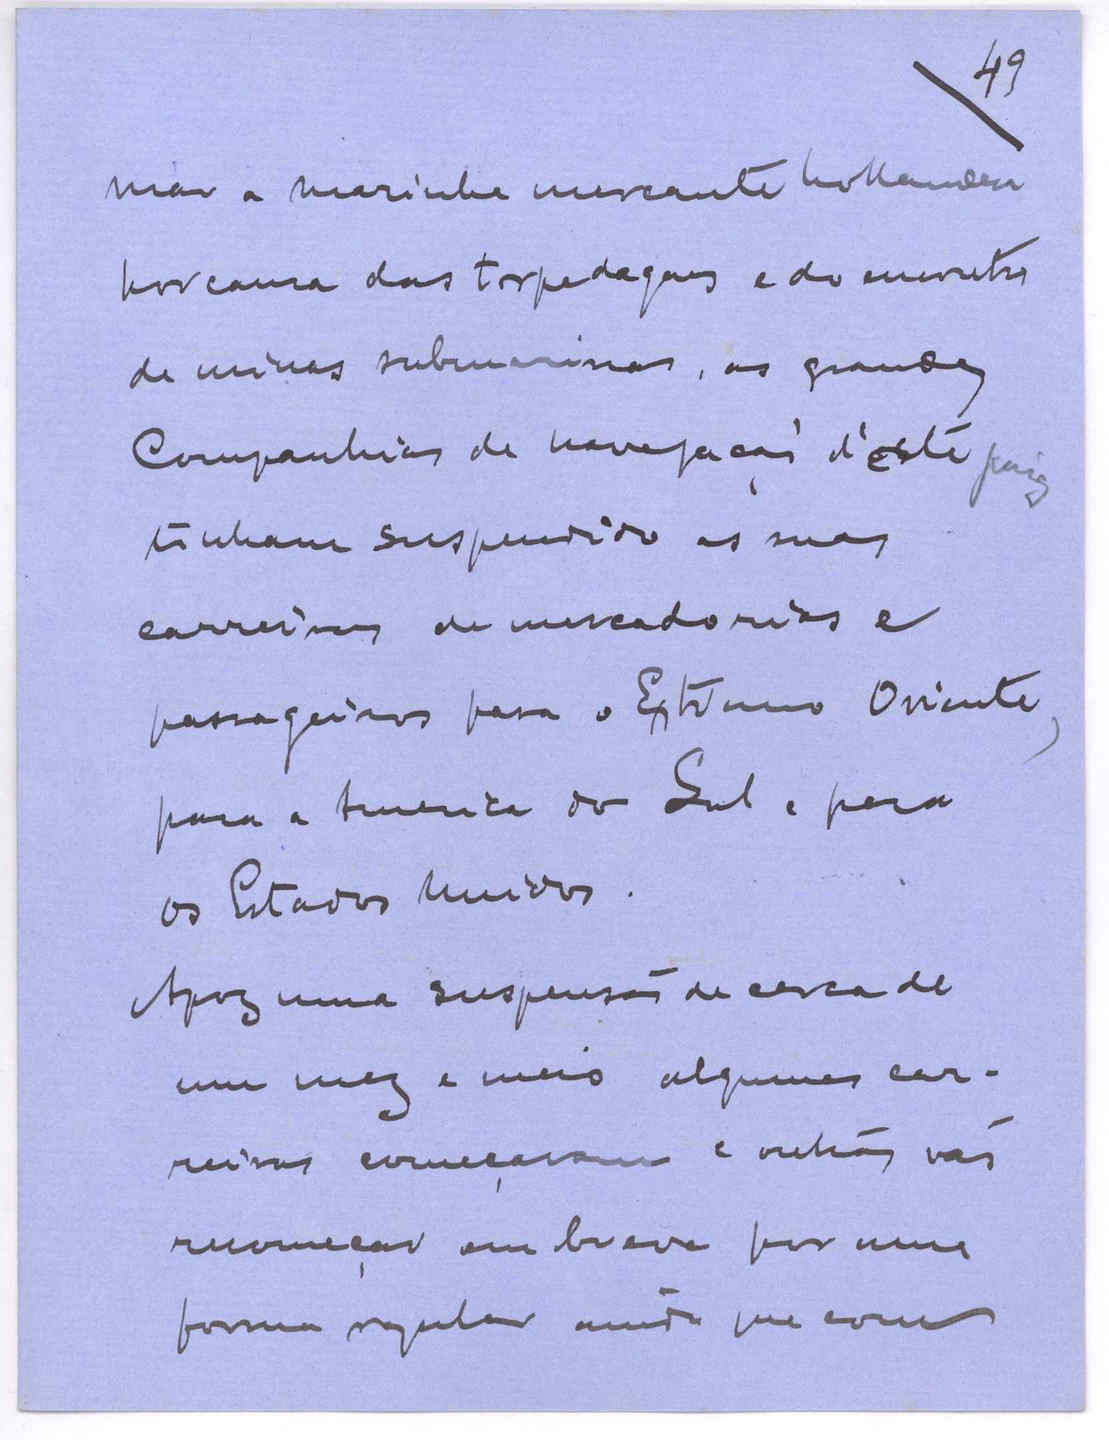 49
mar a marinha mercante hollandeza
por causa das torpedagens e do encontro
de minas submarinas, as grandes
Companhias de navegação d'este paiz
tinham suspendido as suas
carreiras de mercadorias e
passageiros para o Extremo Oriente,
para a America do Sul e para
os Estados Unidos.
Apoz uma suspensão de cerca de
um mez e meio algumas car-
reiras começaram e outras vão
recomeçar em breve por uma
forma regular ainda que com